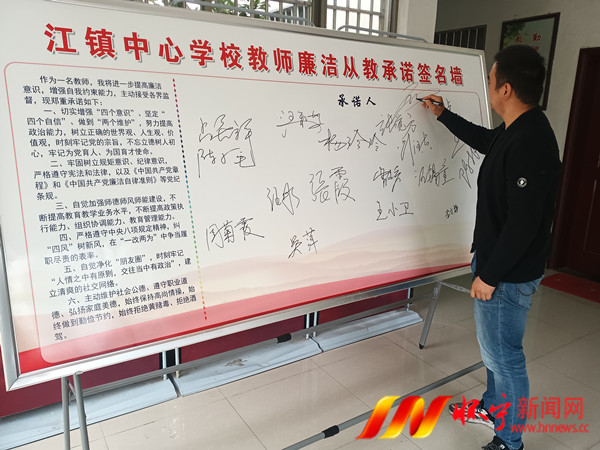 江镇中心学校教师廉洁从教承诺签名墙
作为一名教师，我将进一步提高廉洁
意识，增强自我约束能力，主动接受各界监
督，现郑重承诺如下：
一、切实增强“四个意识”，坚定“
四个自信”、做到“两个维护”，努力提高
政治能力，树立正确的世界观、人生观、价
值观，时刻牢记党的宗旨，不忘立德树人初
心，牢记为党育人、为国育才使命。
二、牢固树立规矩意识、纪律意识，
严格遵守宪法和法律，以及《中国共产党章
程》和《中国共产党廉洁自律准则》等党纪
条规。
三、自觉加强师德师风师能建设，不
断提高教育教学业务水平，不断提高政策执
行能力、组织协调能力、教育管理能力。
四、严格遵守中央八项规定精神，纠
“四风”树新风，在“一改两为”中争当履
职尽责的表率。
五、自觉净化“朋友圈”，时刻牢记
“人情之中有原则，交往当中有政治”，建
立清爽的社交网络。
六、主动维护社会公德、遵守职业道
德、弘扬家庭美德，始终保持高尚情操，始
终做到勤俭节约，始终拒绝黄赌毒、拒绝酒
驾。
承诺人
张霞
周菊霞
吴萍
王小卫
怀宁新闻网
www.hnnews.cc